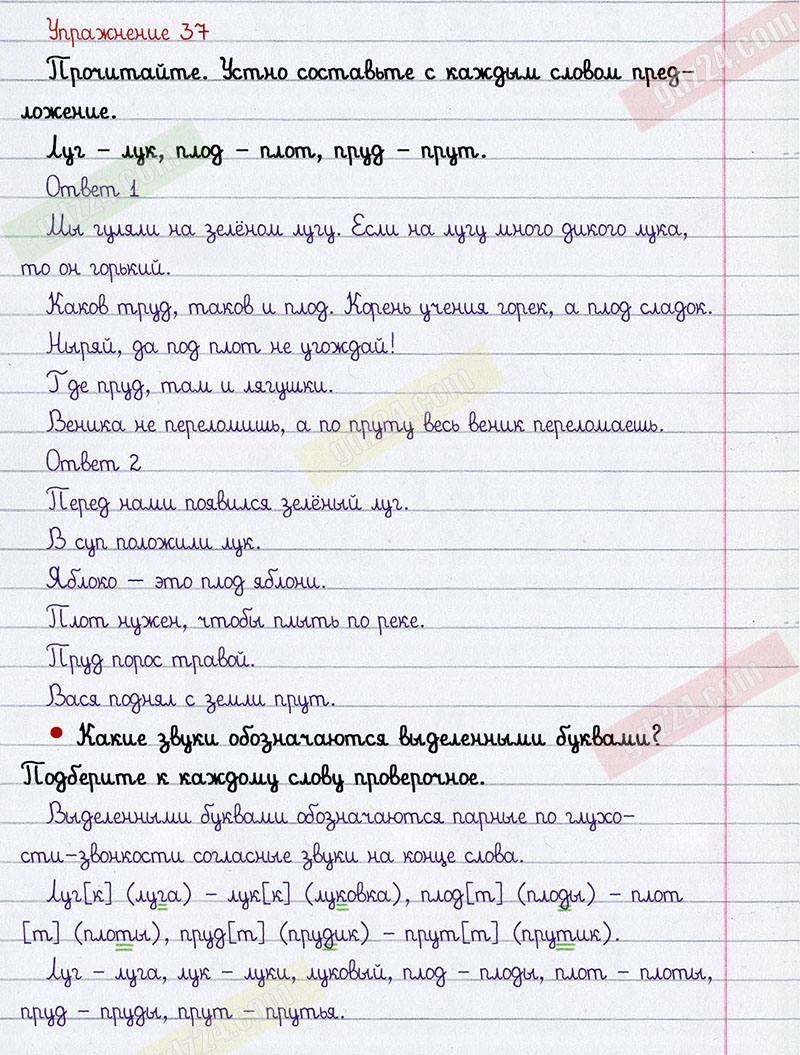 Упражнение 37
Прочитайте. Устно составьте с каждым словом пред-
ложение.
Луг – лук, плод – плот, пруд – прут.
Ответ 1
Мы гуляли на зелёном лугу. Если на лугу много дикого лука,
то он горький.
Каков труд, таков и плод. Корень учения горек, а плод сладок.
Ныряй, да под плот не угождай!
Где пруд, там и лягушки.
Веника не переломишь, а по пруту весь веник переломаешь.
Ответ 2
Перед нами появился зелёный луг.
В суп положили лук.
Яблоко – это плод яблони.
Плот нужен, чтобы плыть по реке.
Пруд порос травой.
Вася поднял с земли прут.
• Какие звуки обозначаются выделенными буквами?
Подберите к каждому слову проверочное.
Выделенными буквами обозначаются парные по глухо-
сти-звонкости согласные звуки на конце слова.
Луг[к] (луга) – лук[к] (луковка), плод[т] (плоды) – плот
[т] (плоты), пруд[т] (прудик) – прут[т] (прутик).
Луг – луга, лук – луки, луковый, плод – плоды, плот – плоты,
пруд – пруды, прут – прутья.
gdz24.com
gdz24.com
gdz24.com
gdz24.com
gdz24.com